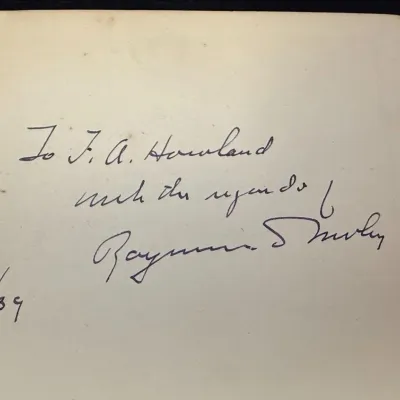 To F. A. Howland
with the regards of
Raymond
39